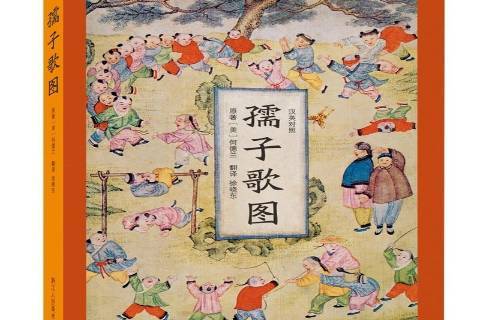 孺子歌图
原著 [美] 何德兰 翻译 徐晓东
汉英对照
孺子歌图
原著 [美] 何德兰 翻译 徐晓东